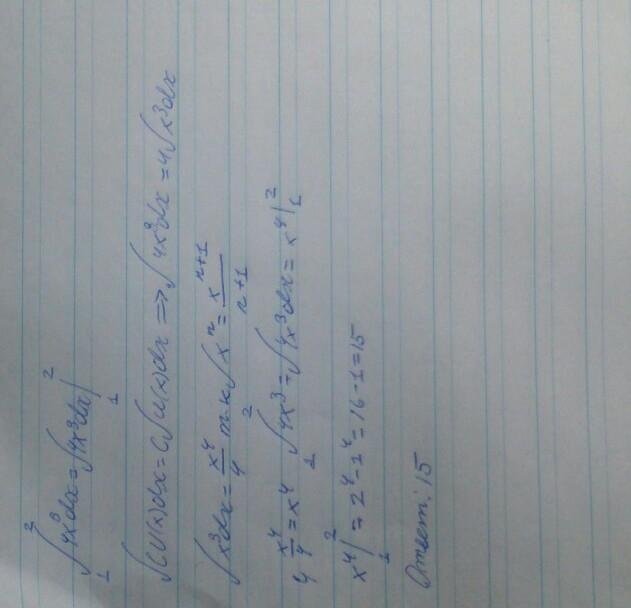 ∫₁² 4x³dx = ∫4x³dx |₁²
∫CU(x)dx = C∫U(x)dx => ∫4x³dx = 4∫x³dx
∫x³dx = x⁴/4 т.к ∫xⁿ = xⁿ⁺¹/n+1
4 x⁴/4 = x⁴ ∫₁² 4x³ = ∫4x³dx = x⁴|₁²
x⁴|₁² = 2⁴ - 1⁴ = 16 - 1 = 15
Ответ: 15